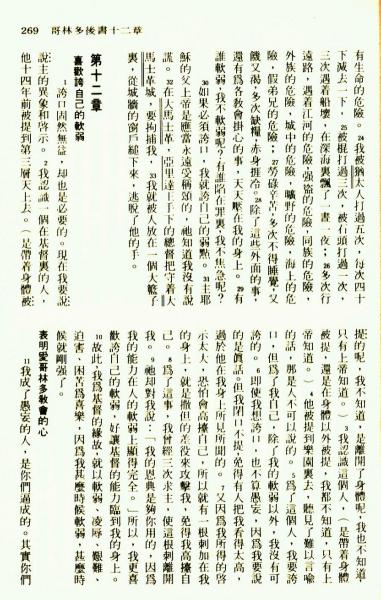 269 哥林多後書十二章
有生命的危險。24我被猶太人打過五次,每次四十
下減去一下,25被棍打過三次,被石頭打過一次,
三次遇着船壞,在深海裏飄了一晝一夜;26多次行
遠路,遇着江河的危險,强盜的危險,同族的危險,
外族的危險,城中的危險,曠野的危險,海上的危
險,假弟兄的危險;27勞碌辛苦,多次不得睡覺,又
餓又渴,多次缺糧,赤身捱冷。28除了這些外面的事,
還有為各教會掛心的事,天天壓在我的身上。29有
誰軟弱,我不軟弱呢?有誰陷在罪裏,我不焦急呢?
30如果必須誇口,我就誇自己的弱點。31主耶
穌的父上帝是應當永遠受稱頌的,祂知道我沒有說
謊。32在大馬士革,亞里達王手下的總督把守着大
馬士革城,要拘捕我,33我就被人放在一個大籃子
裏,從城牆的窗戶縋下來,逃脫了他的手。
第十二章
喜歡誇自己的軟弱
1誇口固然無益,却也是必要的。現在我要說
說主的異象和啓示。2我認識一個在基督裏的人,
他十四年前被提到第三層天上去。(是帶着身體被
提的呢,我不知道,是離開了身體呢,我也不知道,
只有上帝知道。)3我認識這個人,(是帶着身體
被提,還是在身體以外被提,我都不知道,只有上
帝知道。)4他被提到樂園裏去,聽見了難以言喻
的話,那是人不可以說的。5為了這個人,我要誇
口,但為了我自己,除了我的軟弱以外,我沒有可
誇的。6即使我想誇口,也不算愚妄,因為我要說
的是真話。但我閉口不提,免得有人把我看得太高,
過於他在我身上所見所聞的。7又因為我所得的啓
示太大,恐怕會高擡自己,所以就有一根刺加在我
的身上,就是撒但的差役來攻擊我,免得我高擡自
己。8為了這事,我曾經三次求主,使這根刺離開
我。9祂却對我說:「我的恩典是夠你用的,因為
我的能力在人的軟弱上顯得完全。」所以,我更喜
歡誇自己的軟弱,好讓基督的能力臨到我的身上。
10故此,我為基督的緣故,就以軟弱、凌辱、艱難、
迫害、困苦為喜樂,因為我甚麼時候軟弱,甚麼時
候就剛强了。
表明愛哥林多教會的心
11我成了愚妄的人,是你們逼成的。其實你們